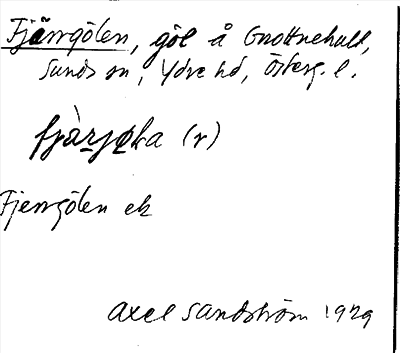 Fjärrgölen, göl å Gnottnehult,
Sunds sn, Ydre hd, Österg. l.
(r)
Fjerrgölen ek
Axel Sandström 1929